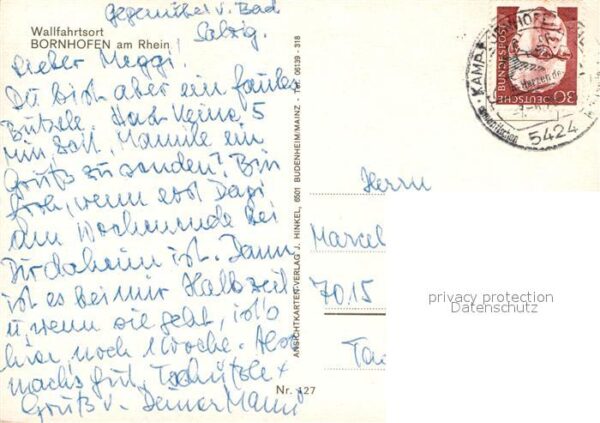 gegenüber v. Bad
Salzig.
Wallfahrtsort
BORNHOFEN am Rhein
Lieber Meggi.
Du bist aber ein faules
Butzele. Hast Keine 5
min Zeit, Mannle ein
Gruß zu senden? Bin
froh, wenn erst Dagi
am Wochenende bei
Dir daheim ist. Dann
ist es bei mir Halbzeit
u, wenn sie geht, ist's
hier noch 1 Woche. Also
mach's gut, Tschüßle +
Gruß v. Deiner Mann
Nr. 127
ANSICHTKARTEN-VERLAG J. HINKEL, 6501 BUDENHEIM/MAINZ - Tel. 06139 - 318
DEUTSCHE
BUNDESPOST
30
KAMP-BORNHOFEN
5424
Herrn
Marcel
7015
privacy protection
Datenschutz